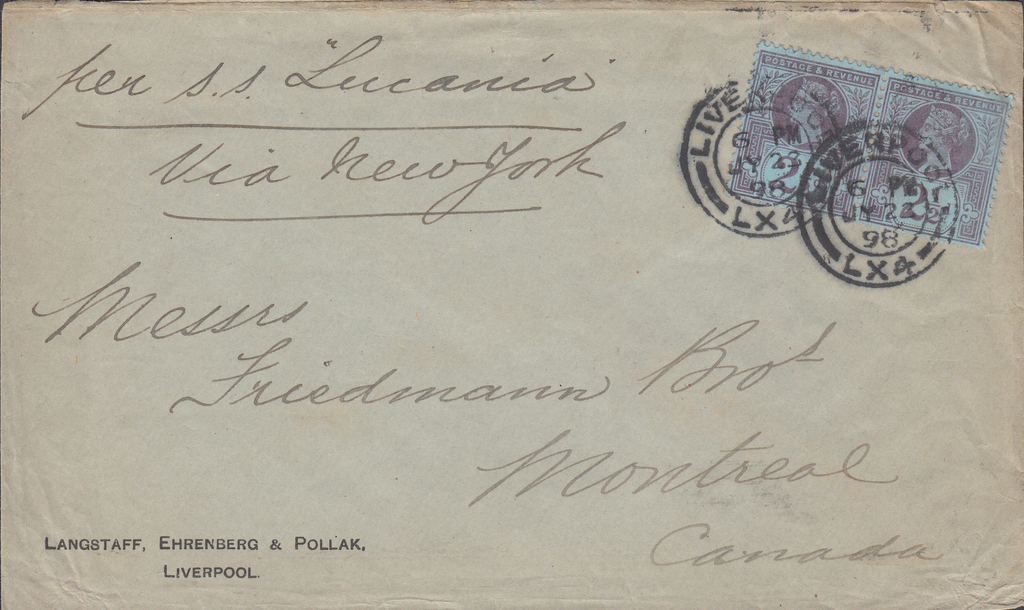 per s.s. "Lucania"
Via New York
POSTAGE & REVENUE
POSTAGE & REVENUE
LIVERPOOL
6 PM
JY 23
98
LX4
LIVERPOOL
6 PM
JY 23
98
LX4
Messrs
Friedmann Bros
Montreal
Canada
LANGSTAFF, EHRENBERG & POLLAK,
LIVERPOOL.